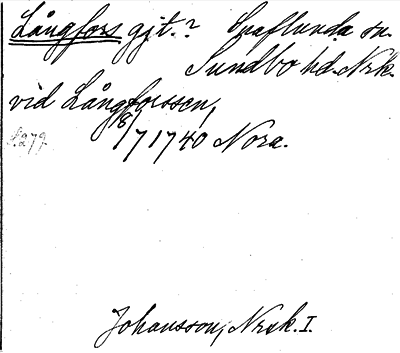 Långfors gjt.? Snaflunda sn.
Sundbo hd. Nrk.
vid Långforssen,
18/7 1740 Nora.
s. 279.
Johansson, Nrsk. I.